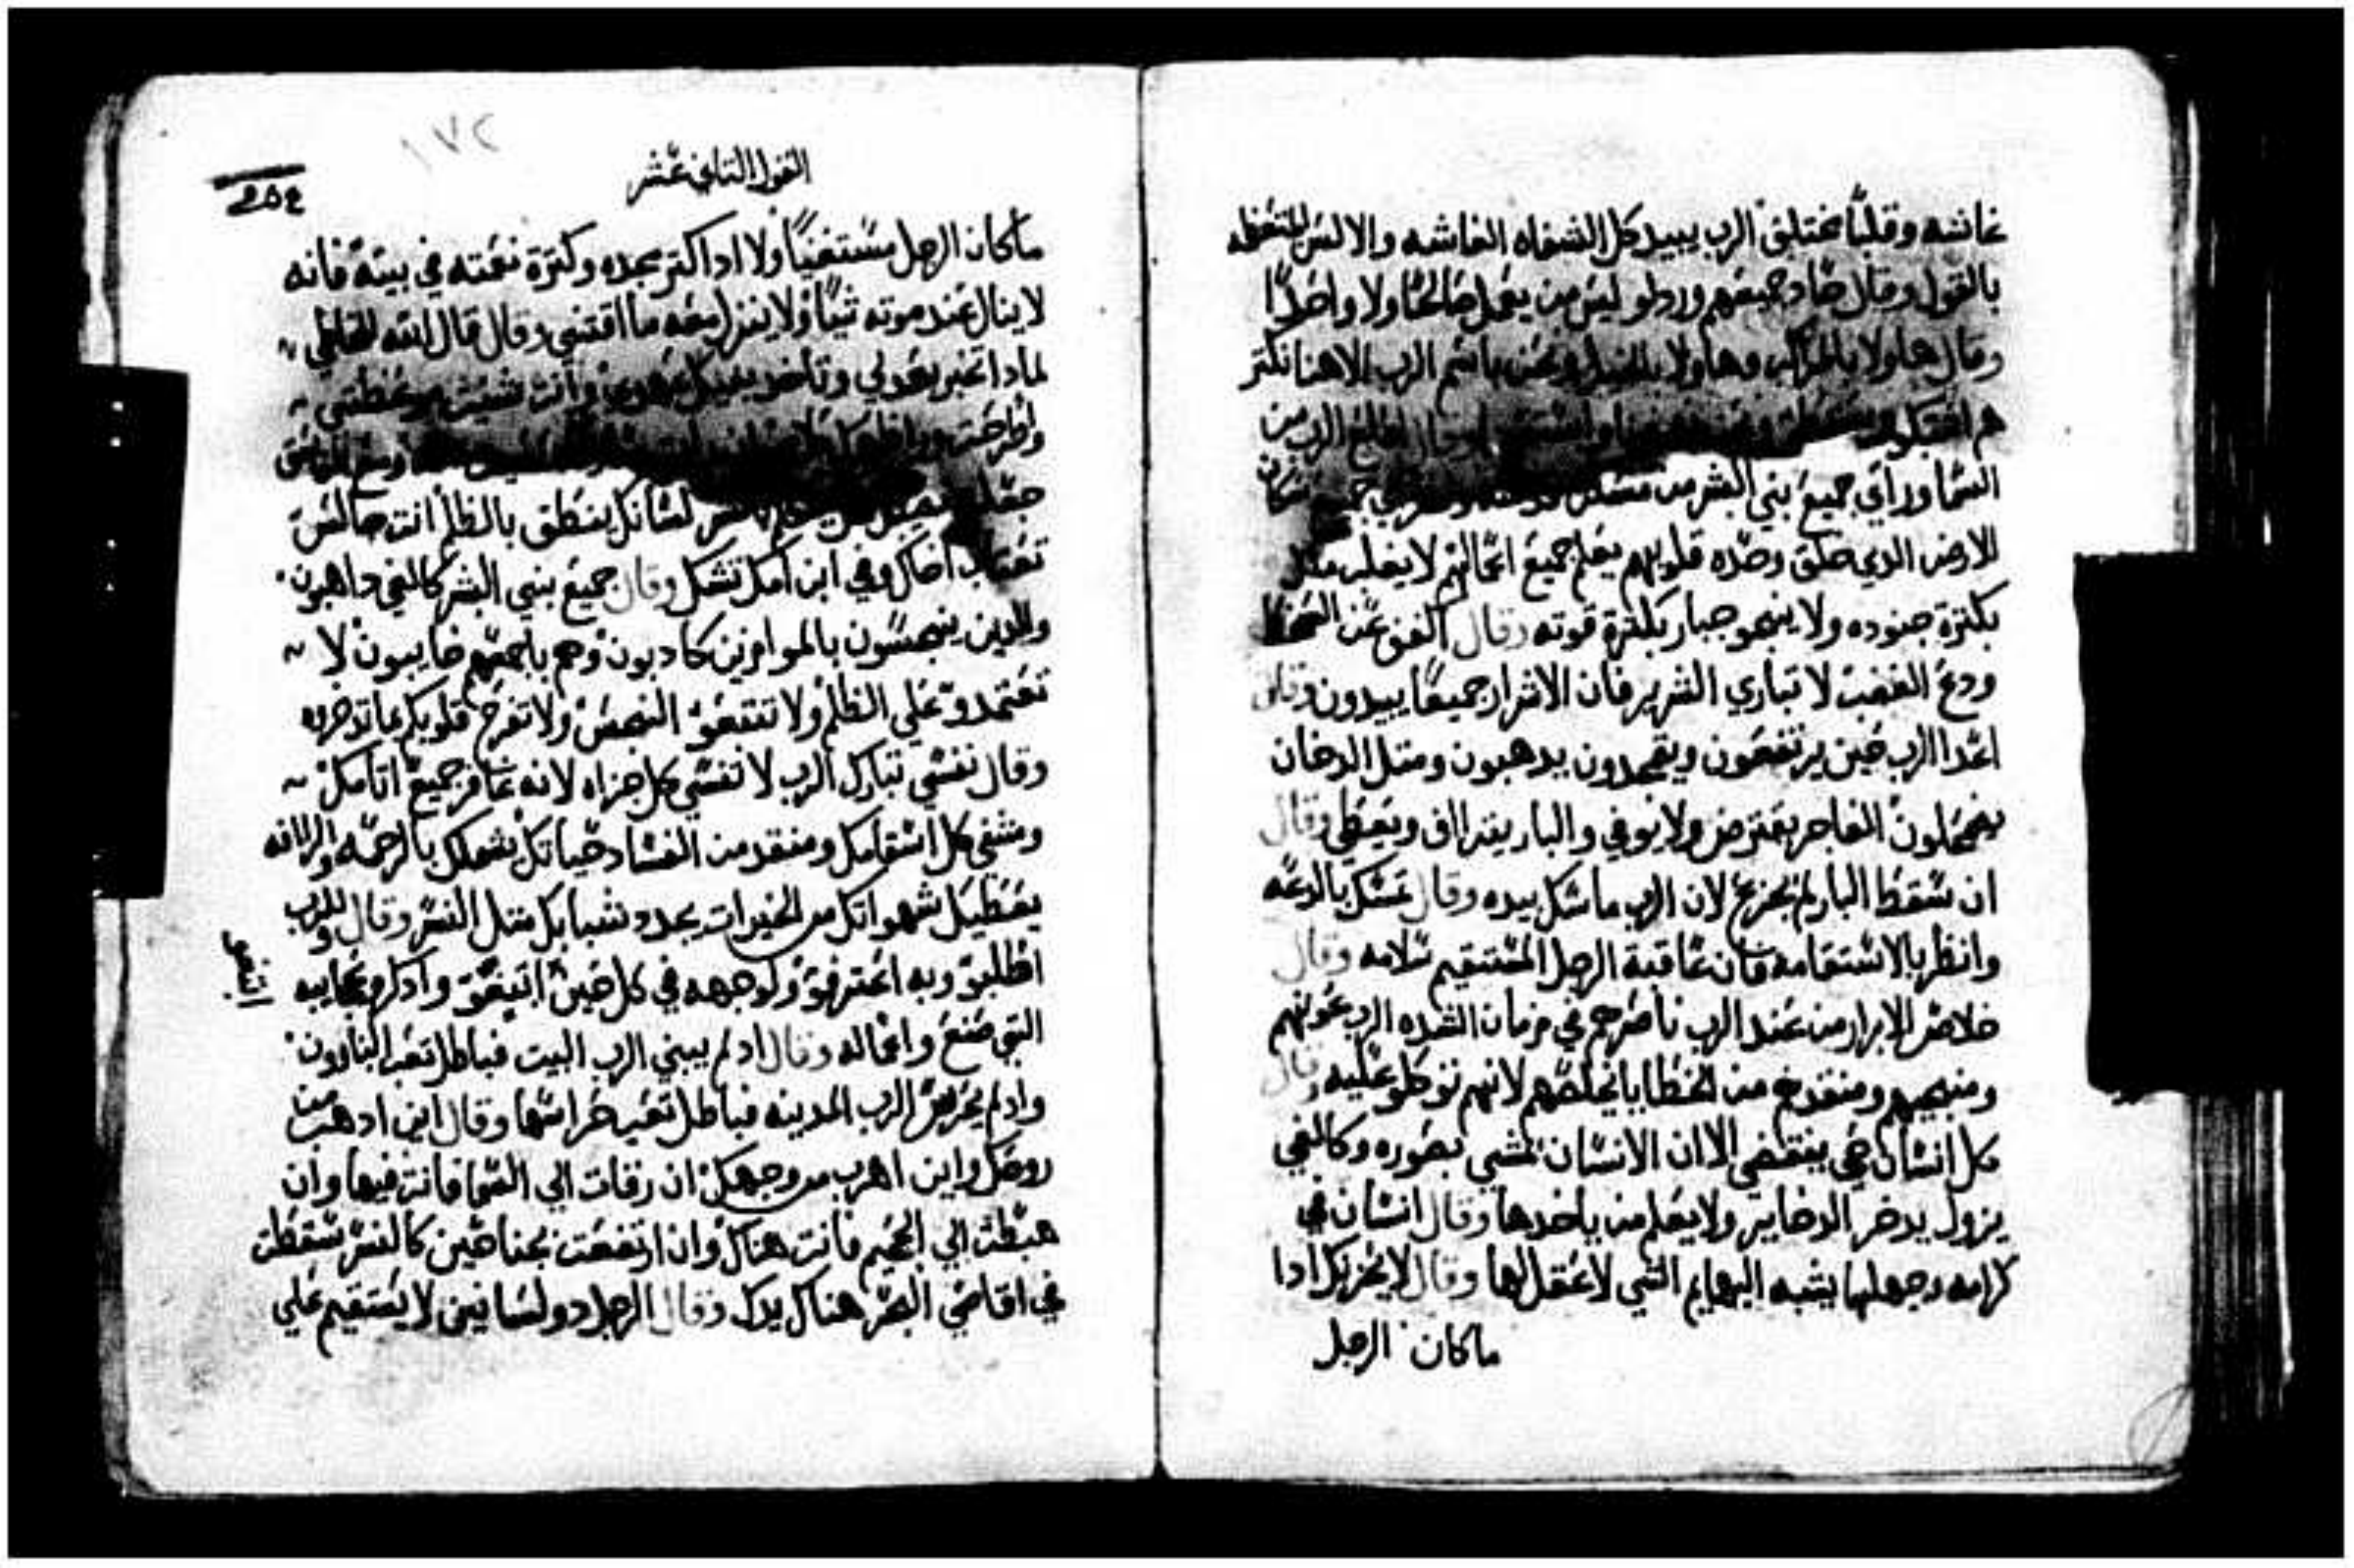 غاشه وقلبًا مختلفَ الرب يبيد كل الشفاه الغاشه والالسن المتعظمه
بالقول وقال حاد جميعهم وردلو ليس من يعمل صالحًا ولا واحدًا
وقال هاولا بالمراكب وهاولا بالخيل ونحن باسم الرب الاهنا نكتر
هم الرب من
السما وراي جميع بني البشر من مسكن
الارض الدي خلق وحده قلوبهم يعلم جميع اعمالهم لا يغلب ملك
بكترة جنوده ولا ينجو جبار بكترة قوته وقال اكفف عن السخط
ودع الغضب لا تباري الشرير فان الاشرار جميعًا يبيدون وقال
اعدا الرب حين يرتفعون ويمجدون يدهبون ومتل الدخان
يضمحلون الفاجر يقترض ولا يوفي والبار يتراف ويعطي وقال
ان سقط البار لم يجزع لان الرب ماسك بيده وقال تمسك بالدعه
وانظر بالاستقامه فان عاقبة الرجل المستقيم سلامه وقال
خلاص الابرار من عند الرب ناصرهم في زمان الشده الرب عونهم
ومنجيهم ومنقدهم من الخطايا يخلصهم لانهم توكلو عليه وقال
كل انسان حي ينقضي الا ان الانسان يمشي بصوره وكالفي
يزول يدخر الدخاير ولا يعلم من ياخدها وقال انسان في
كرامه وجهلها يشبه البهايم التي لا عقل لها وقال لا يحزنك ادا
ماكان الرجل
١٧٢
القول التاني عشر
ماكان الرجل مستغنيًا ولا ادا كتر مجده وكترة نعمته في بيته فانه
لا ينال عند موته شيًا ولا ينزل معه ما اقتني وقال قال الله للخاطي
لمادا تخبر بعدلي وتاخد بفيك عهدي وانت شنيت موعظتي
واطرحت
جعلت لسانك ينطق بالظلم انت جالس
تغتاب اخاك وفي ابن امك تشك وقال جميع بني البشر كالفي داهبون
والدين ينجسون بالموازين كادبون وهم باجمعهم خايبون لا
تعتمدو علي الظلم ولا تتبعو النجس ولا تفرح قلوبكم بما تدخروه
وقال نفسي تبارك الرب لا تنسي كل جزاه لانه غافر جميع اتامك
ومشفي كل اسقامك ومنقد من الفساد حياتك يشملك بالرحمه والرافه
يعطيك شهواتك من الخيرات يجدد شبابك متل النسر وقال للرب
اطلبو وبه اعترفو ولوجهه في كل حين ابتغو وادكرو عجايبه
التي صنع واعماله وقال اد لم يبني الرب البيت فباطل تعب البناوون
واد لم يحرس الرب المدينه فباطل تعب حراسها وقال اين ادهب من
روحك واين اهرب من وجهك ان رقات الي السما فانت فيها وان
هبطت الي الجحيم فانت هناك وان ارتفعت بجناحين كالنسر سقطت
في اقاصي البحر هناك يدك وقال الرجل دو لسانين لا يستقيم علي